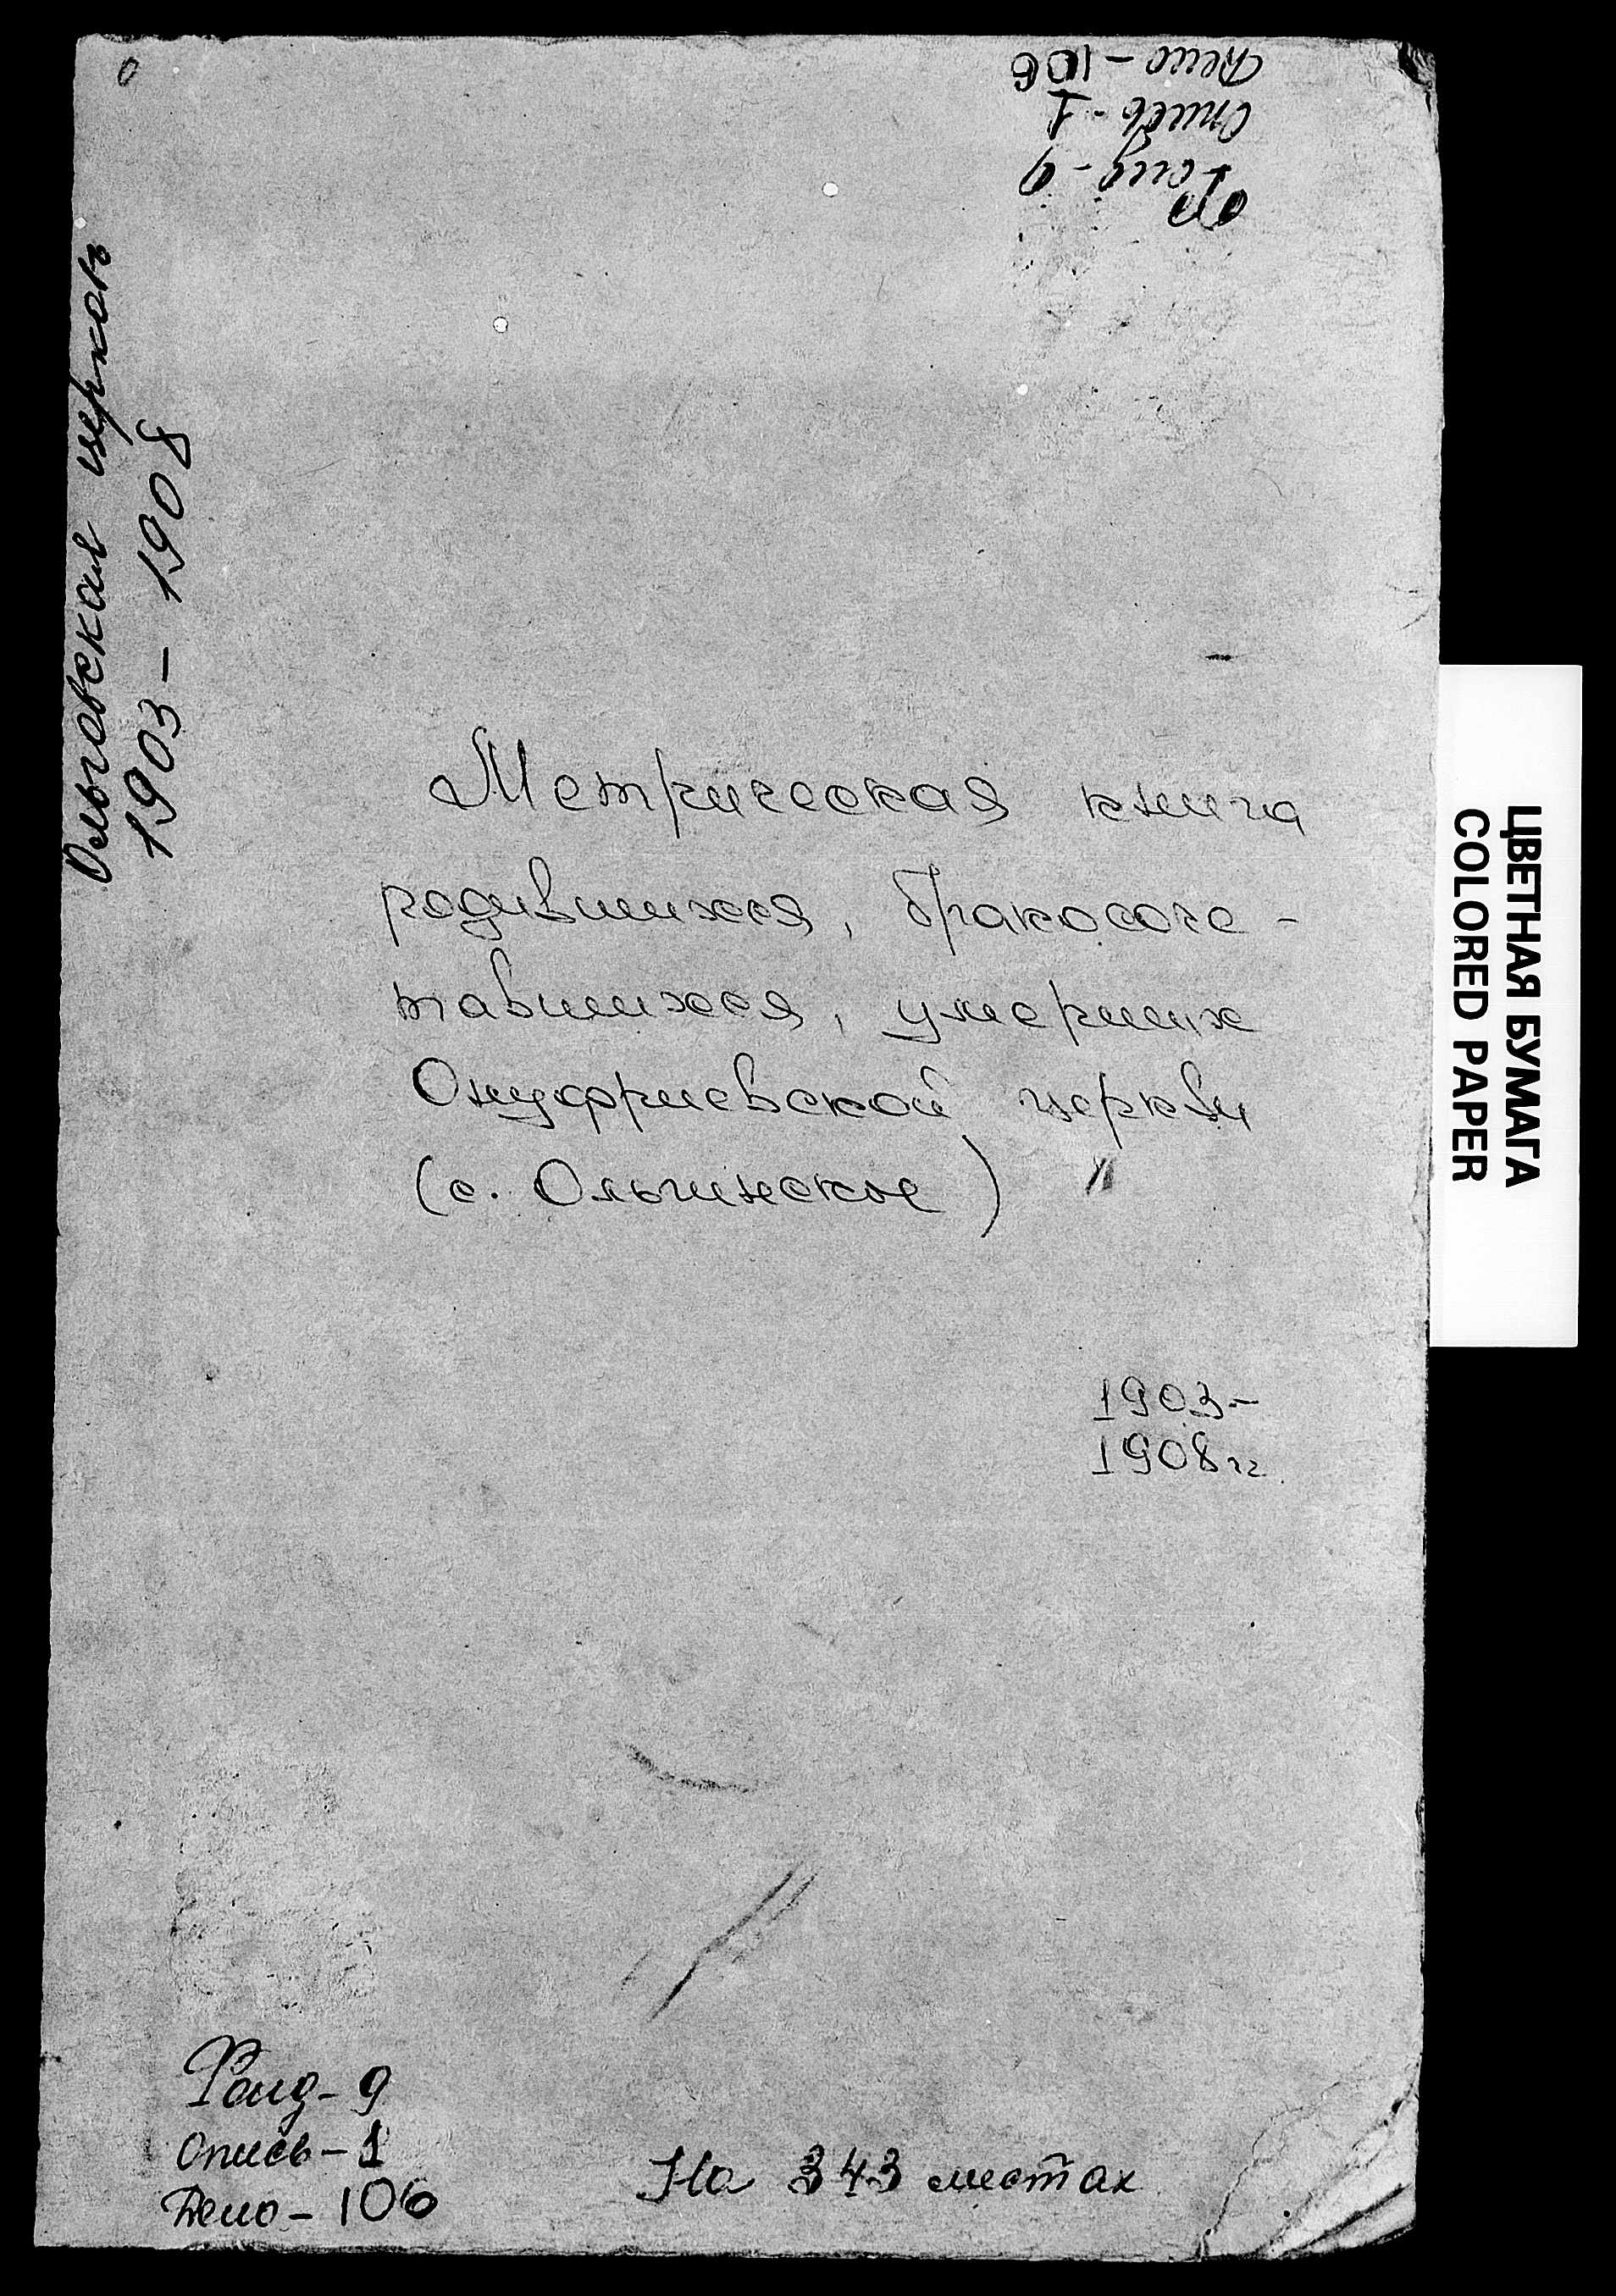 Дело - 106
Опись - 1
Фонд - 9
Ольговская церковь
1903 - 1908
Метрическая книга
родившихся, бракосоче-
тавшихся, умерших
Онуфриевской церкви
(с. Ольгинское)
1903-
1908 гг.
ЦВЕТНАЯ БУМАГА
COLORED PAPER
Фонд - 9
Опись - 1
Дело - 106
На 343 листах